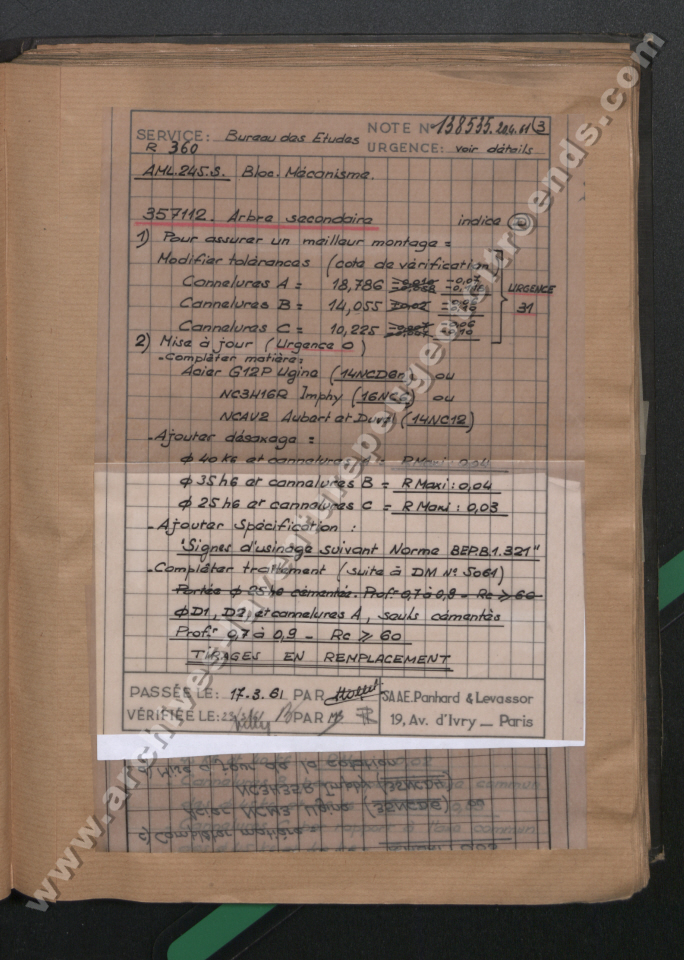 SERVICE: Bureau des Etudes
NOTE N° 138535. 204.61 3
R 360
URGENCE: voir détails
AML.245.S. Bloc. Mécanisme.
357112. Arbre secondaire indice
1) Pour assurer un meilleur montage =
Modifier tolérances (cote de vérification)
Cannelures A = 18,786
URGENCE
31
Cannelures B = 14,055
Cannelures C = 10,225
2) Mise à jour (Urgence O)
- Compléter matière:
Acier G12P Ugine (14NCD6) ou
NC3H16R Imphy (16NC6) ou
NCAV2 Aubert et Duval (14NC12)
- Ajouter désaxage =
φ 40 k6 et cannelures A = R Maxi: 0,04
φ 35h6 et cannelures B = R Maxi: 0,04
φ 25 h6 et cannelures C = R Maxi: 0,03
- Ajouter Spécification :
"Signes d'usinage suivant Norme BEP.B.1.321"
- Compléter traitement (suite à DM N° 5061)
Portée φ 25 h6 cémentée. Prof.r 0,7 à 0,9 - Rc ⩾ 60
φ D1, D2, et cannelures A, seuls cémentés
Prof.r 0,7 à 0,9 - Rc ⩾ 60
TIRAGES EN REMPLACEMENT
PASSÉE LE: 17.3.61 PAR
SAAE. Panhard & Levassor
VÉRIFIÉE LE: PAR
19, Av. d'Ivry _ Paris
c) Compléter matière
Acier NCM3 Ugine (35NCD6)
NC3H35R Imphy
d) Mise à jour de la cotation
www.archives-levegetlurepeugeotcitroends.com